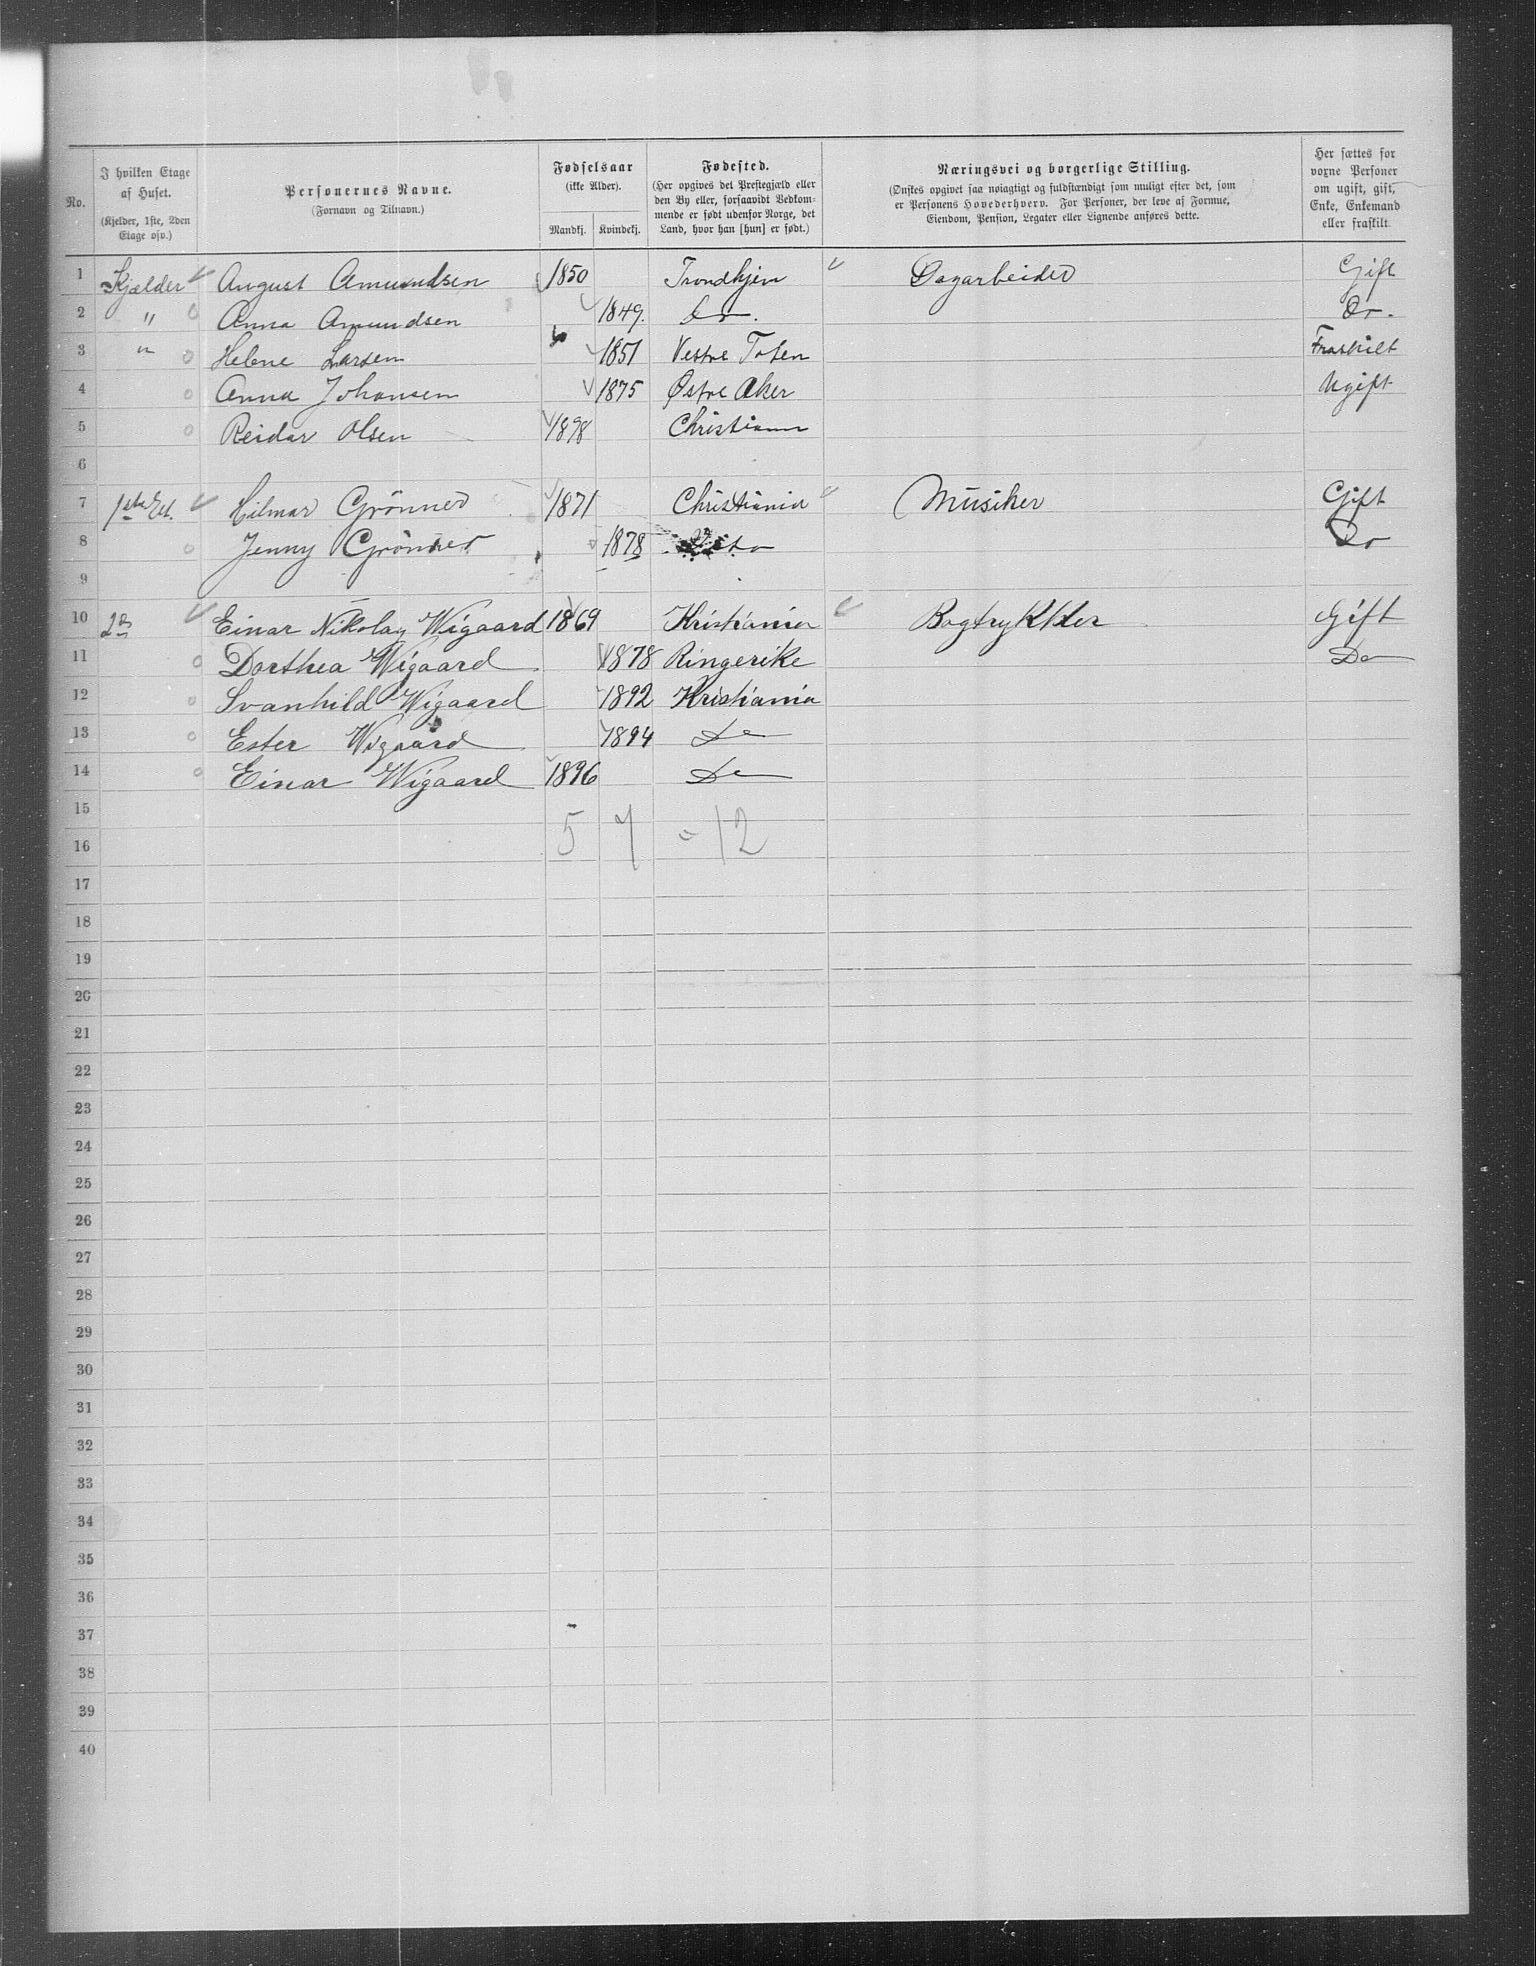 No.
I hvilken Etage af Huset.
(Kjelder, 1ste, 2den Etage osv.)
Personernes Navne.
(Fornavn og Tilnavn.)
Fødselsaar
(ikke Alder).
Mandkj. Kvindekj.
Fødested.
(Her opgives det Prestegjæld eller den By eller, forsaavidt Vedkommende er født udenfor Norge, det Land, hvor han [hun] er født.)
Næringsvei og borgerlige Stilling.
(Ønskes opgivet saa nøiagtigt og fuldstændigt som muligt efter det, som er Personens Hovederhverv. For Personer, der leve af Formue, Eiendom, Pension, Legater eller Lignende anføres dette.
Her sættes for voxne Personer om ugift, gift, Enke, Enkemand eller fraskilt.
1 Kjælder August Amundsen 1850 Trondhjem Dagarbeider Gift
2 " Anna Amundsen 1849. Do. Do.
3 " Helene Larsen 1851 Vestre Toten Fraskilt
4 Anna Johansen 1875 Østre Aker Ugift
5 Reidar Olsen 1898 Christiania
6
7 1ste Et. Hilmar Grönner 1871 Christiania Musiker Gift
8 Jenny Grönner 1878 Do
9
10 2den Einar Nikolay Wigaard 1869 Kristiania Bogtrykker Gift
11 Dorthea Wigaard 1878 Ringerike Do
12 Svanhild Wigaard 1892 Kristiania
13 Ester Wigaard 1894 Do
14 Einar Wigaard 1896 Do
15
16 5 7 = 12
17
18
19
20
21
22
23
24
25
26
27
28
29
30
31
32
33
34
35
36
37
38
39
40